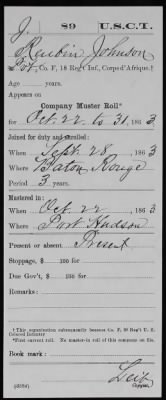 J. 89 U.S.C.T.
Reubin Johnson
Pvt, Co. F, 18 Reg't Inf., Corps d'Afrique.†
Age years.
Appears on
Company Muster Roll*
for Oct. 22 to 31, 1863
Joined for duty and enrolled:
When Sept. 28, 1863
Where Baton Rouge
Period 3 years.
Mustered in:
When Oct. 22, 1863
Where Port Hudson
Present or absent Present
Stoppage, $ 100 for
Due Gov't, $ 100 for
Remarks:
† This organization subsequently became Co. F, 89 Reg't U. S.
Colored Infantry
*First current roll. No muster-in roll of this company on file.
Book mark:
Leib
Copyist.